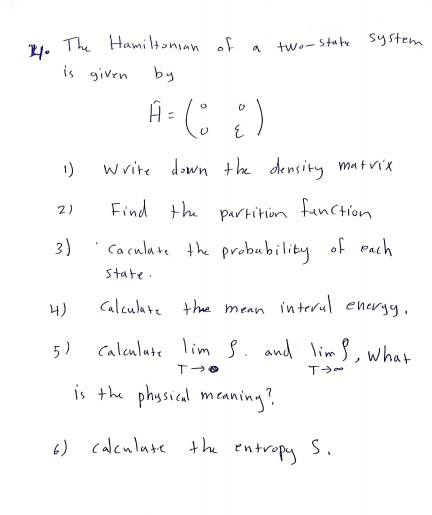 4. The Hamiltonian of a two-state system
is given by
Ĥ = ( 0 0
0 ε )
1) Write down the density matrix
2) Find the partition function
3) Caculate the probability of each
state.
4) Calculate the mean interal energy.
5) Calculate lim ρ. and lim ρ, what
T→0 T→∞
is the physical meaning?
6) Calculate the entropy S.